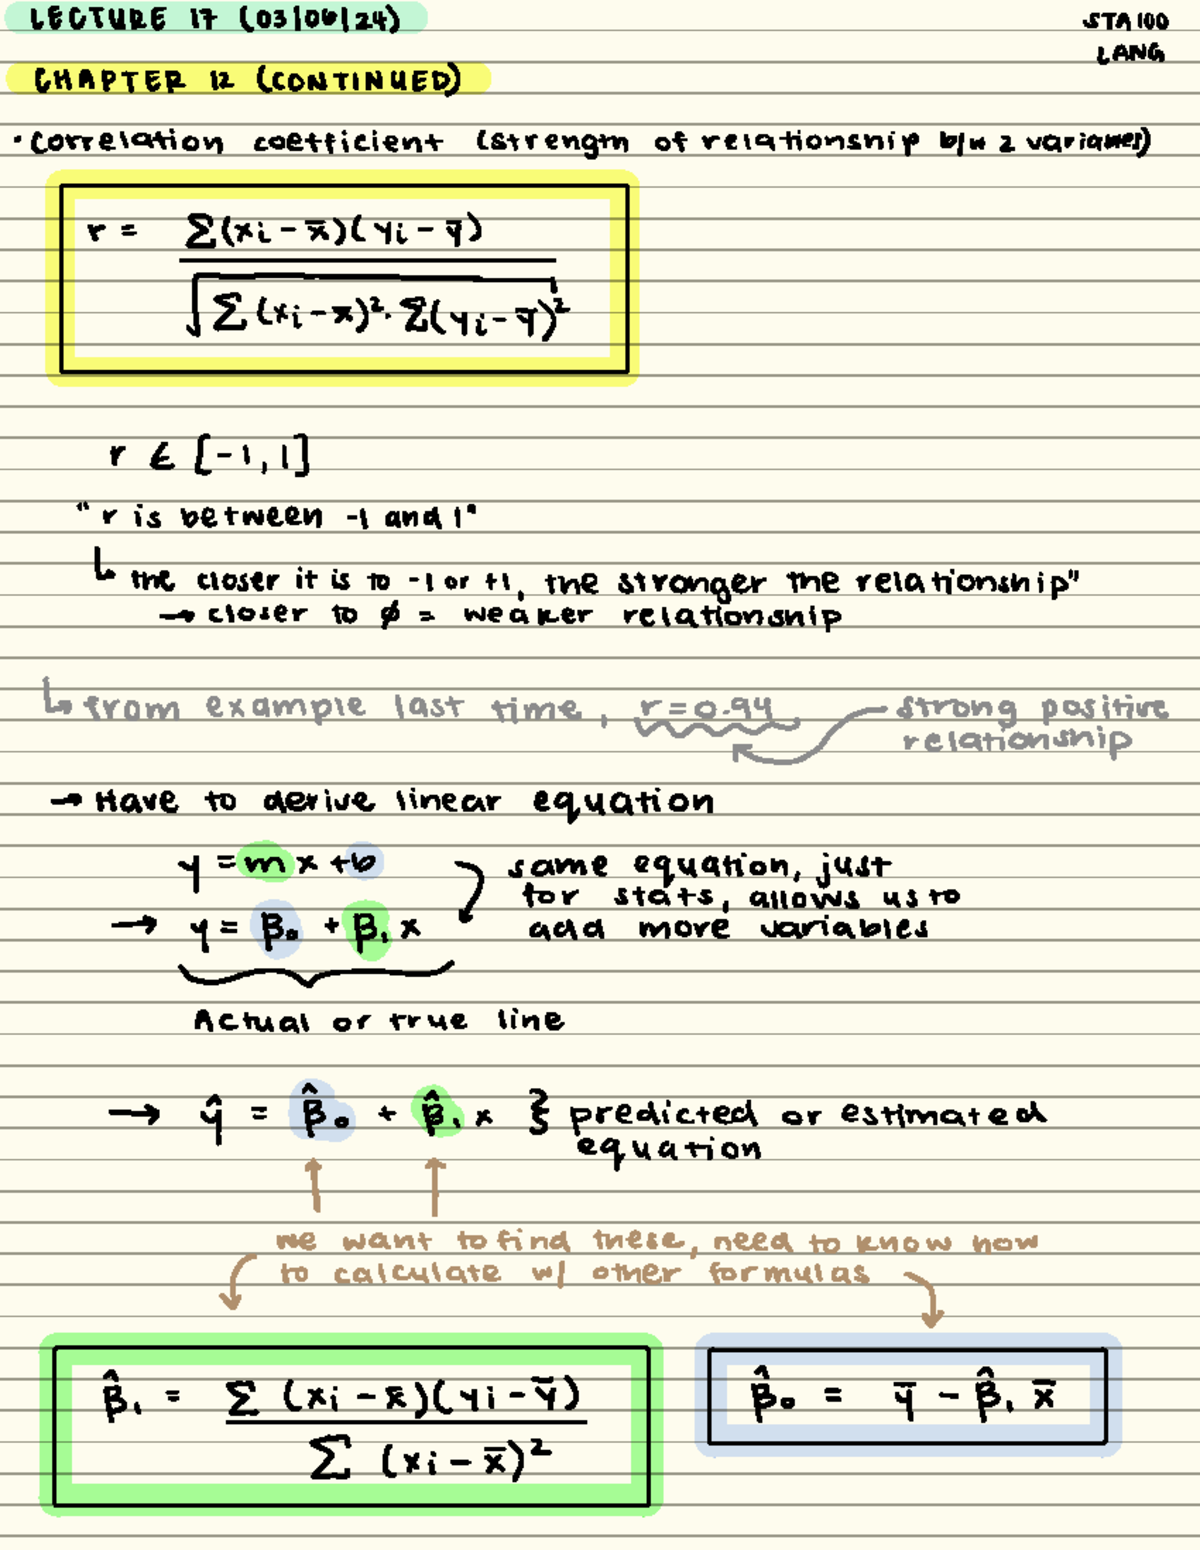 LECTURE 17 (03/06/24)
STA 100
LANG
CHAPTER 12 (CONTINUED)
• correlation coefficient (strength of relationship b/w 2 variables)
r = Σ(xi - x̄)(yi - ȳ)
√Σ(xi - x̄)² · Σ(yi - ȳ)²
r ∈ [-1, 1]
"r is between -1 and 1"
↳ the closer it is to -1 or +1, the stronger the relationship"
→ closer to ∅ = weaker relationship
↳ from example last time, r = 0.94
strong positive
relationship
→ Have to derive linear equation
y = mx + b
same equation, just
for stats, allows us to
→ y = β₀ + β₁x
add more variables
Actual or true line
→ ŷ = β̂₀ + β̂₁x } predicted or estimated
equation
we want to find these, need to know how
to calculate w/ other formulas
β̂₁ = Σ (xi - x̄)(yi - ȳ)
Σ (xi - x̄)²
β̂₀ = ȳ - β̂₁ x̄